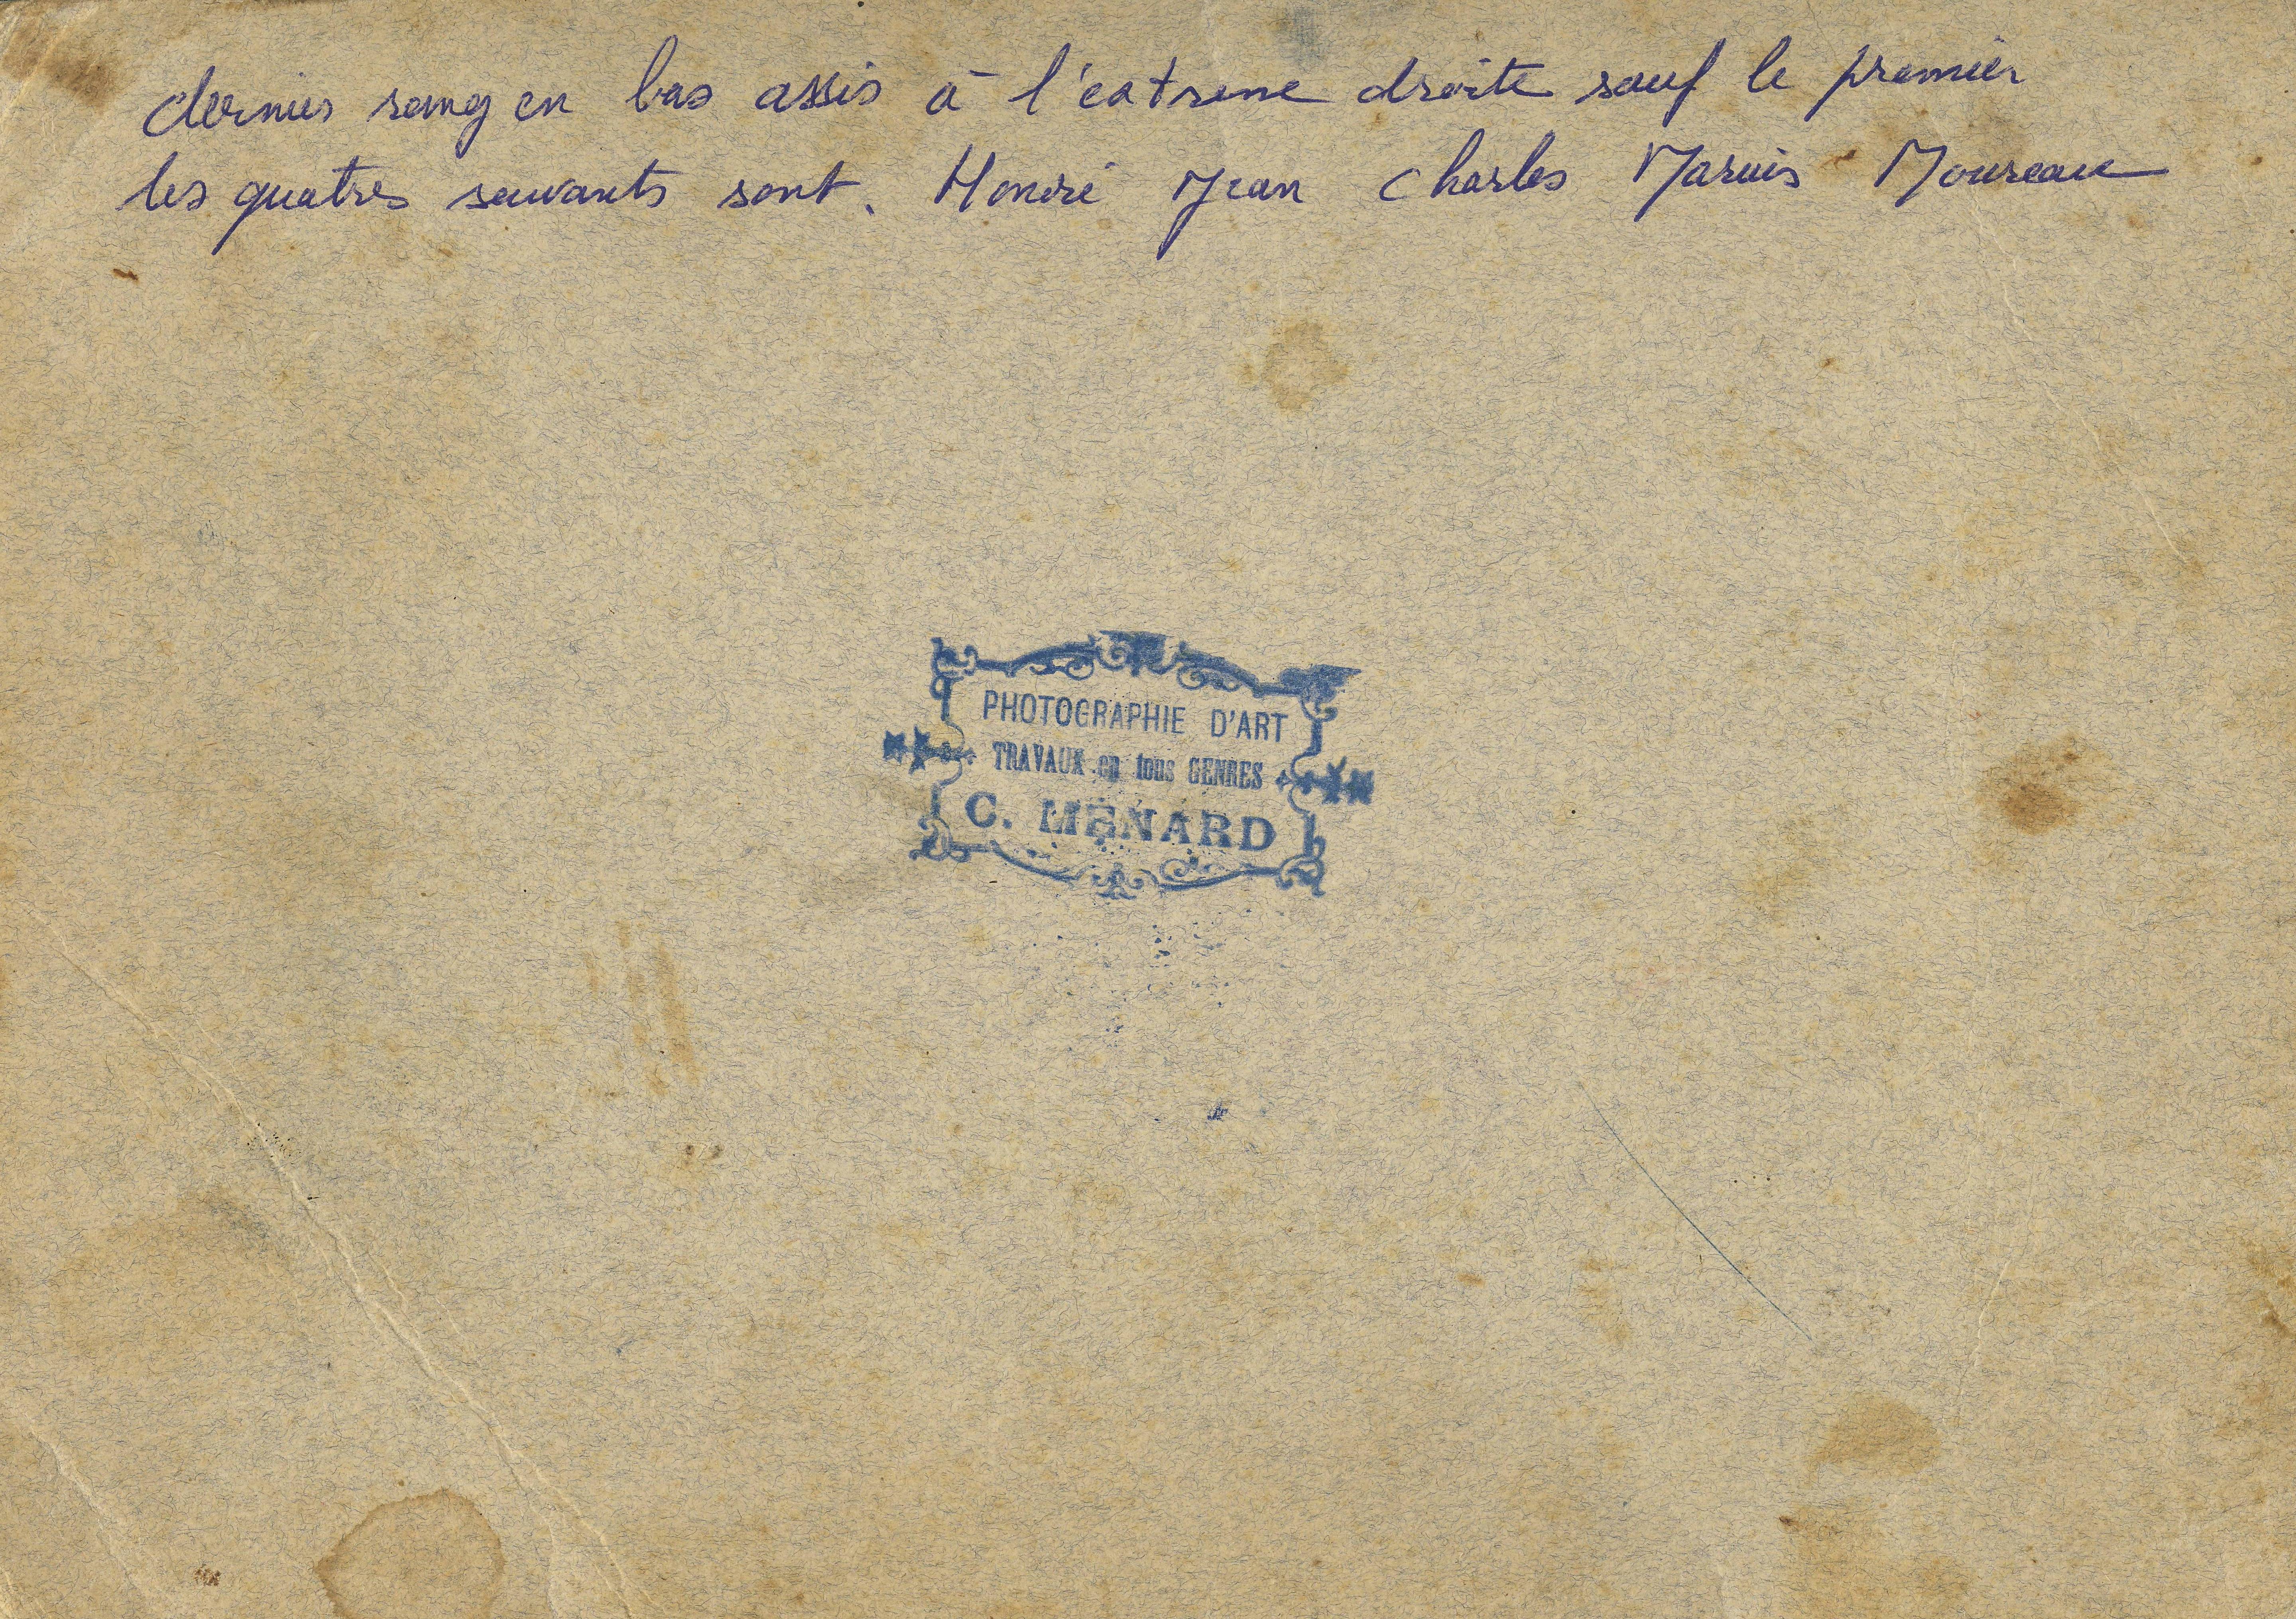 dernier rang en bas assis à l'extreme droite sauf le premier
les quatres suivants sont. Honoré Jean Charles Marius Moureau
PHOTOGRAPHIE D'ART
TRAVAUX en tous GENRES
C. MÉNARD